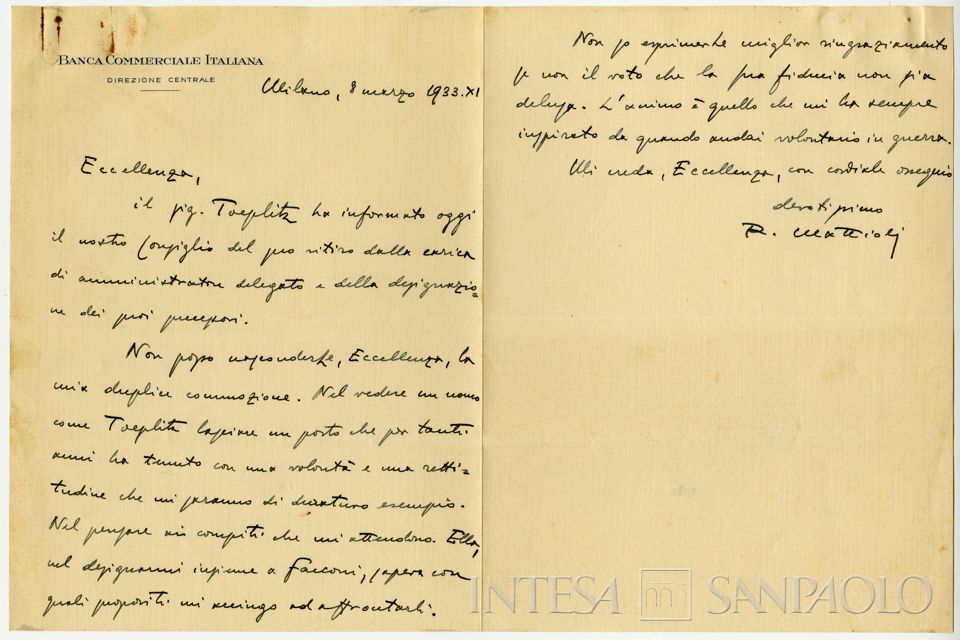 BANCA COMMERCIALE ITALIANA
DIREZIONE CENTRALE
Milano, 8 marzo 1933.XI
Eccellenza,
il sig. Toeplitz ha informato oggi
il nostro Consiglio del suo ritiro dalla carica
di amministratore delegato e della designazio=
ne dei suoi successori.
Non posso nasconderLe, Eccellenza, la
mia duplice commozione. Nel vedere un uomo
come Toeplitz lasciare un posto che per tanti
anni ha tenuto con una volontà e una retti=
tudine che mi saranno di duraturo esempio.
Nel pensare ai compiti che mi attendono. Ella,
nel designarmi insieme a Facconi, sapeva con
quali propositi mi accingo ad affrontarli.
Non so esprimerLe miglior ringraziamento
se non il voto che la sua fiducia non sia
delusa. L'animo è quello che mi ha sempre
inspirato da quando andai volontario in guerra.
Mi creda, Eccellenza, con cordiale ossequio
devotissimo
R. Mattioli
INTESA SANPAOLO